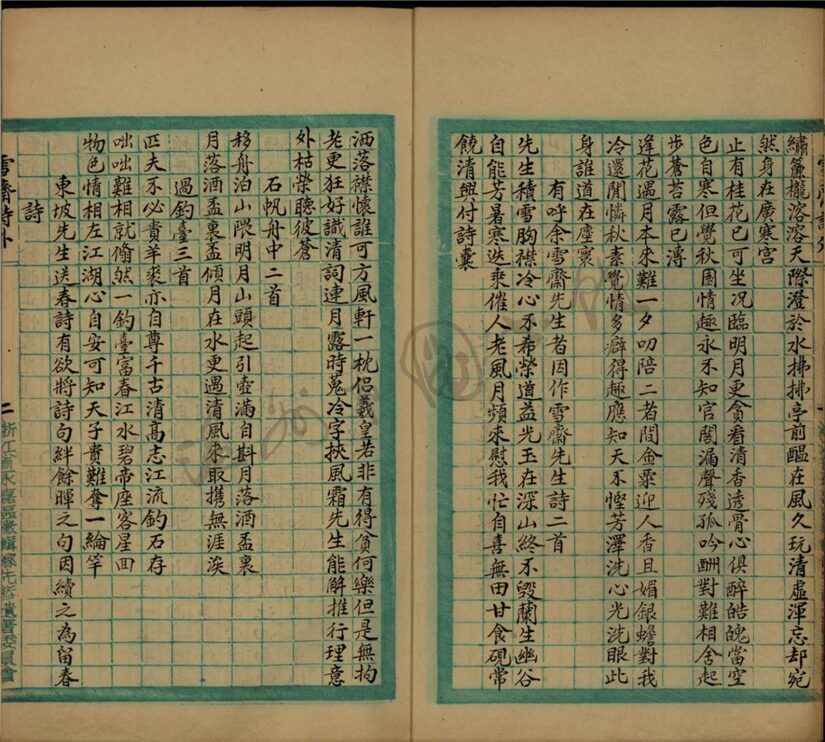 繡簾櫳溶溶天際澄於水拂拂亭前醞在風久玩清虛渾忘却宛
然身在廣寒宮
止有桂花已可坐況臨明月更貪看清香透骨心俱醉皓魄當空
色自寒但覺秋園情趣永不知官閣漏聲殘孤吟酬對難相舍起
步蒼苔露已漙
逢花遇月本來難一夕叨陪二者間金粟迎人香且媚銀蟾對我
冷還閒憐秋素覺情多癖得趣應知天不慳芳澤洗心光洗眼此
身誰道在塵寰
有呼余雪齋先生者因作雪齋先生詩二首
先生積雪胸襟冷心不希榮道益光玉在深山終不毀蘭生幽谷
自能芳暑寒迭乘催人老風月頻來慰我忙自喜無田甘食硯常
饒清興付詩囊
洒落襟懷誰可方風軒一枕侶羲皇若非有得貧何樂但是無拘
老更狂好識清詞連月露時蒐冷字挾風霜先生能解推行理意
外枯榮聽彼蒼
石帆舟中二首
移舟泊山隈明月山頭起引壺滿自斟月落酒盃裏
月落酒盃裏盃傾月在水更遇清風來取携無涯涘
過釣臺三首
匹夫不必貴羊裘亦自尊千古清高志江流釣石存
咄咄難相就翛然一釣臺富春江水碧帝座客星回
物色情相左江湖心自安可知天子貴難奪一綸竿
東坡先生送春詩有欲將詩句絆餘暉之句因續之為留春
詩
雪齋詩外
二